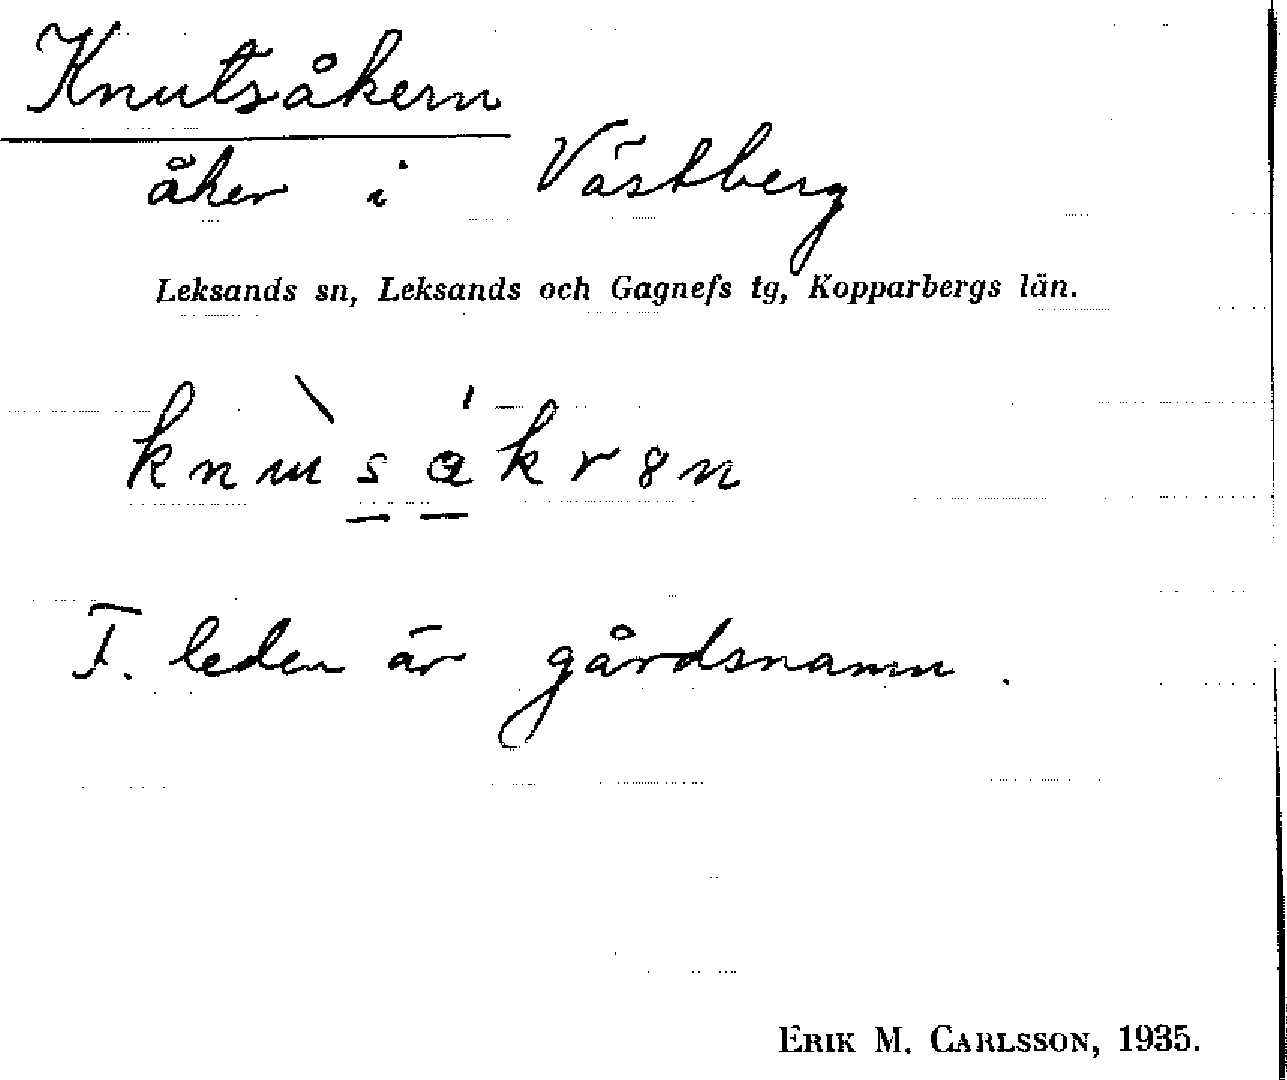 Knutsåkern
åker i Västberg
Leksands sn, Leksands och Gagnefs tg, Kopparbergs län.
F. leden är gårdsnamn.
ERIK M. CARLSSON, 1935.